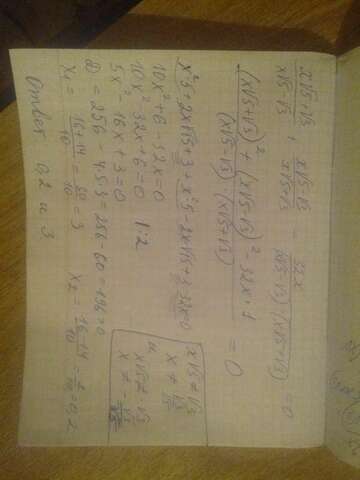 x√5+√3/x√5-√3 + x√5-√3/x√5+√3 - 32x/(x√5-√3)·(x√5+√3) = 0
(x√5+√3)² + (x√5-√3)² - 32x·1/(x√5-√3)·(x√5+√3) = 0
x²5+2x√15+3+x²5-2x√15+3-32x=0
10x²+6-32x=0
10x²-32x+6=0 |:2
5x²-16x+3=0
D=256-4·5·3=256-60=196>0
x₁=16+14/10=30/10=3 x₂=16-14/10=2/10=0,2
Ответ 0,2 и 3
x√5≠√3
x≠√3/√5
и
x√5≠-√3
x≠-√3/√5